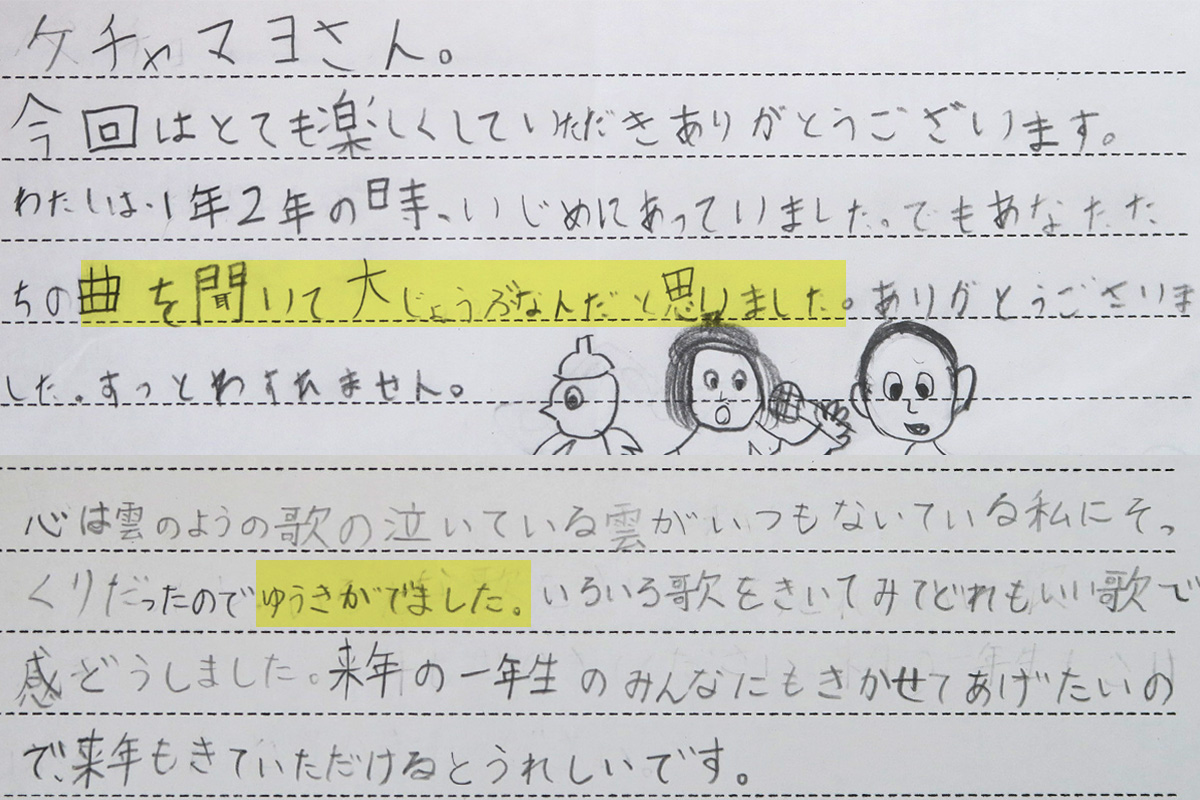 ケチャマヨさん。
今回はとても楽しくしていただきありがとうございます。
わたしは、1年2年の時、いじめにあっていました。でもあなたた
ちの曲を聞いて大じょうぶなんだと思いました。ありがとうございま
した。ずっとわすれません。
心は雲のようの歌の泣いている雲がいつもないている私にそっ
くりだったのでゆうきがでました。いろいろ歌をきいてみてどれもいい歌で
感どうしました。来年の一年生のみんなにもきかせてあげたいの
で、来年もきていただけるとうれしいです。